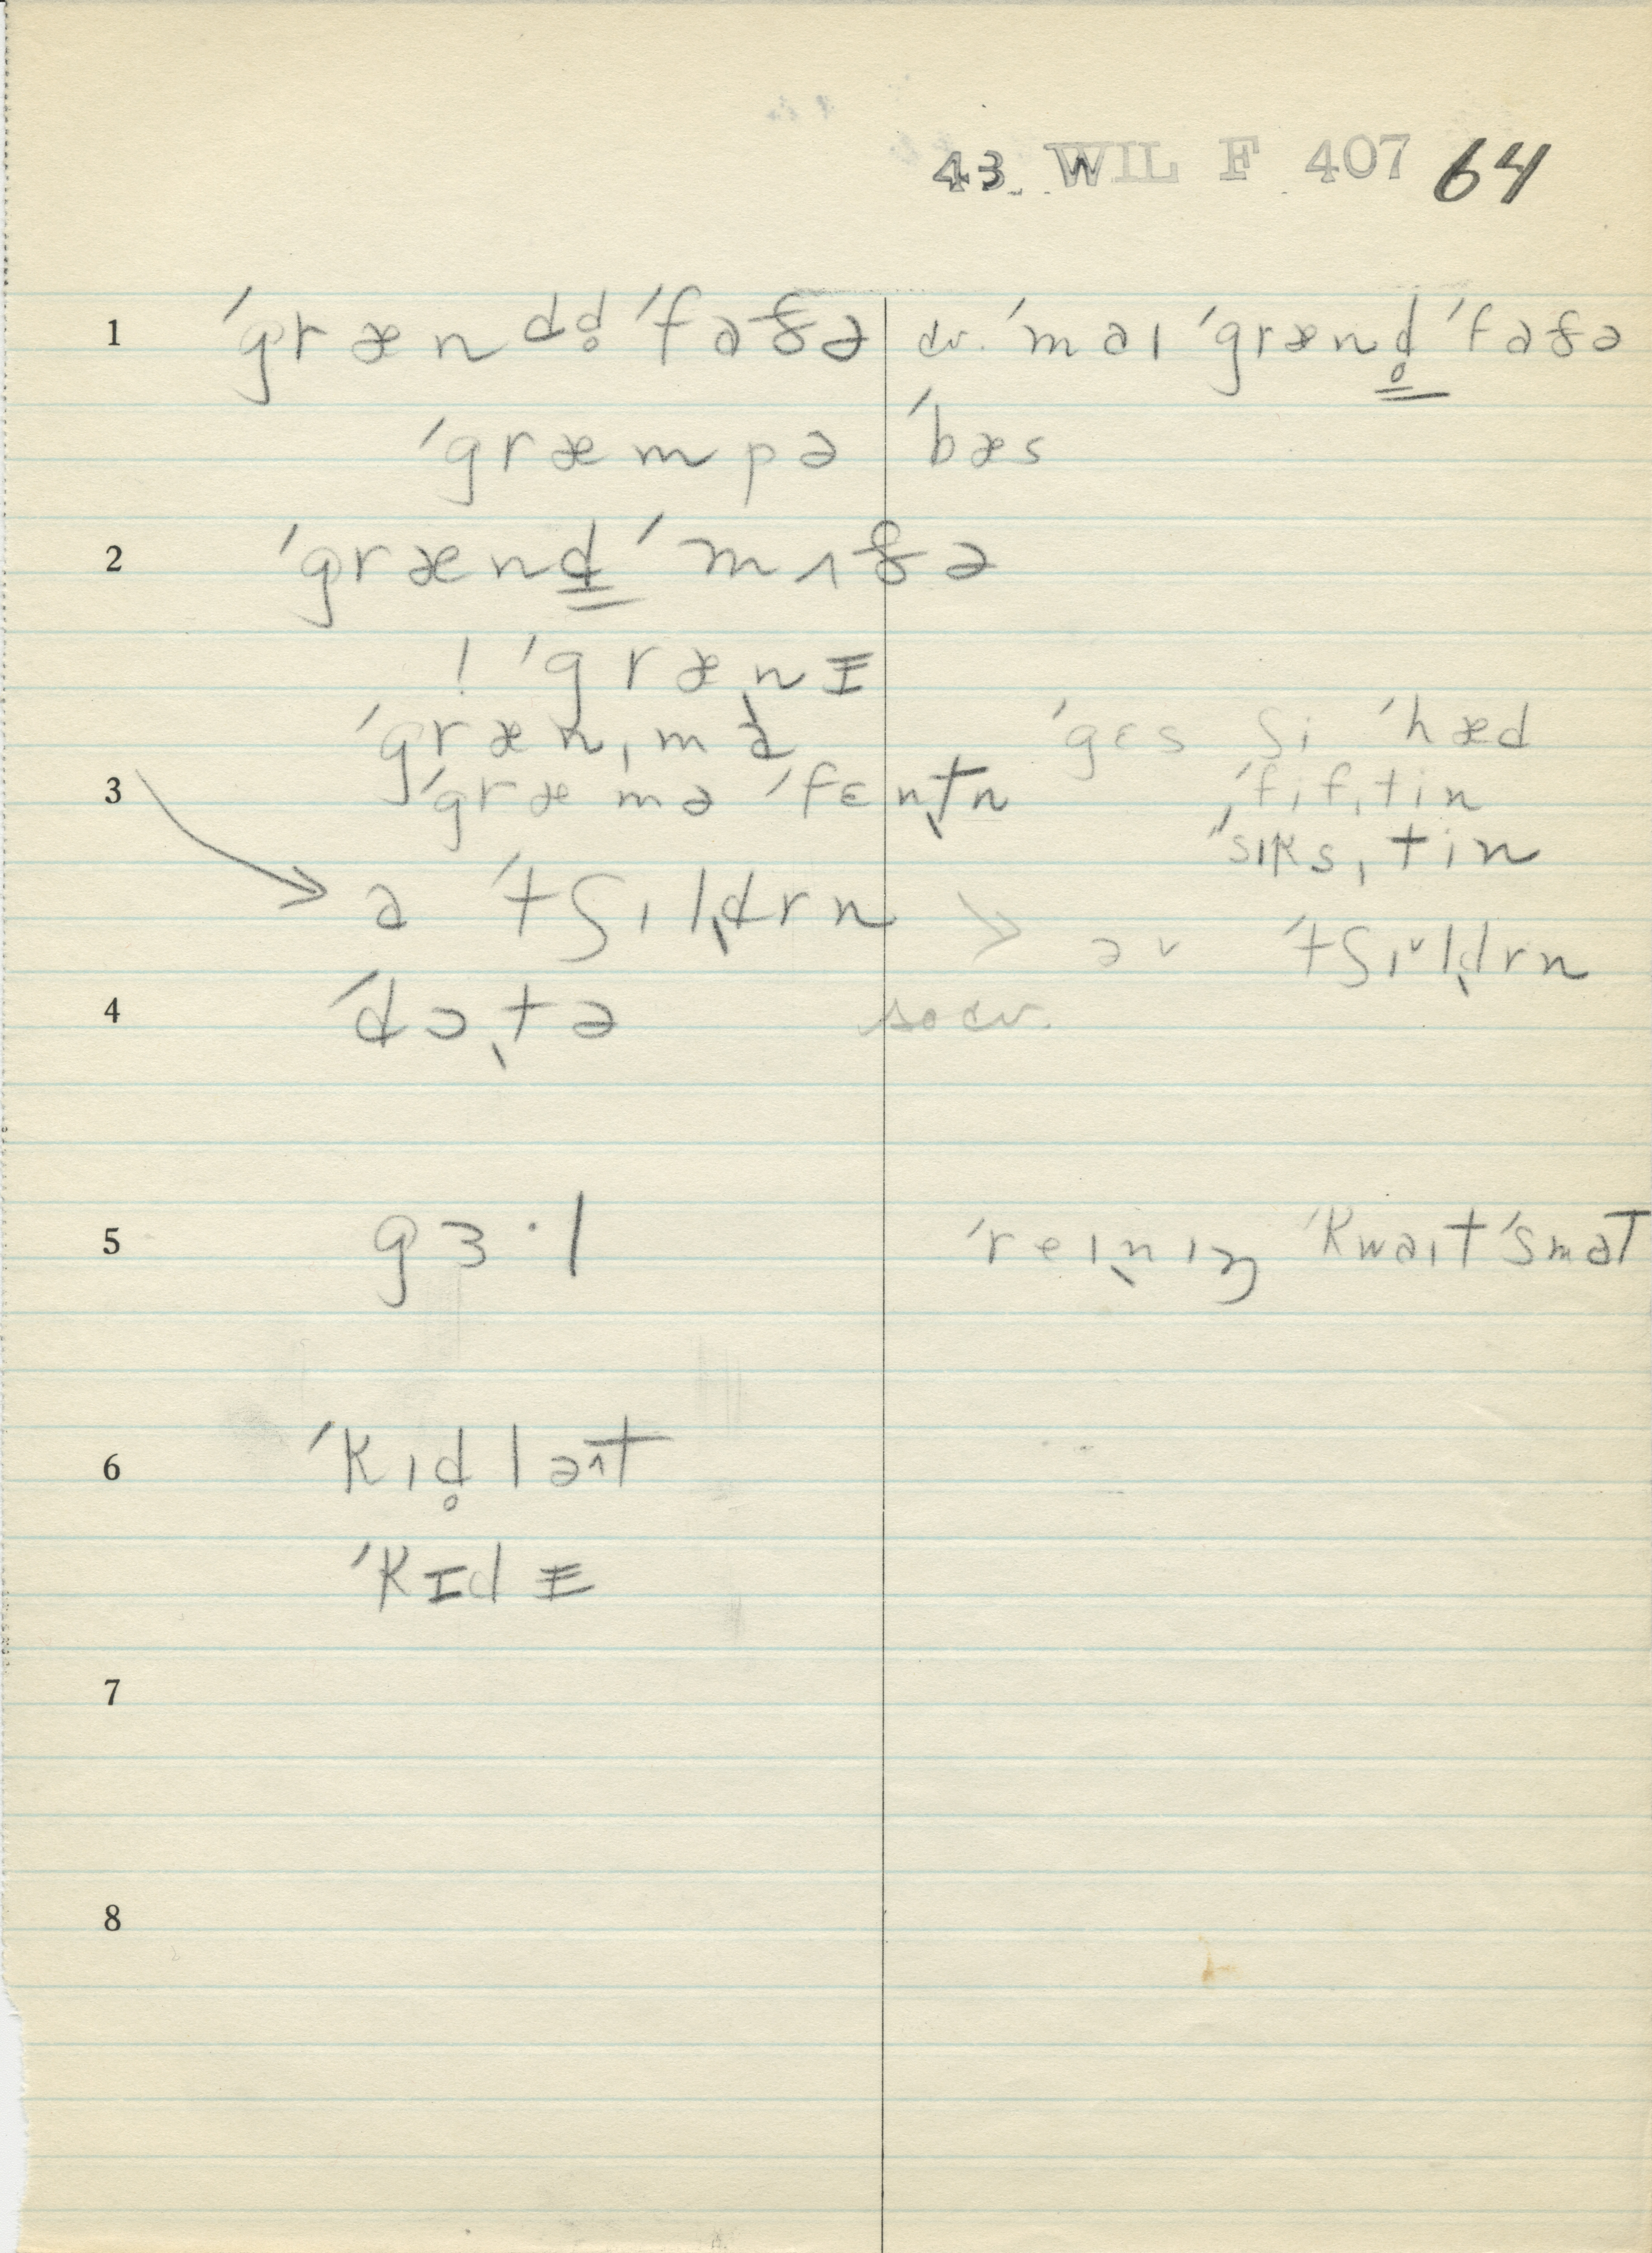 43. WIL F 407 64
1 ˈgrænddˌ̥ˈfaðə cv. ˈmaɪ ˈgrænd̥ˈfaðə
ˈgræmpə ˈbæs
2 ˈgrændˈmʌðə
! ˈgrænɪ
ˈgrænˌma ˈgɛs ʃi ˈhæd
3 ˈgræmə ˈfɛntn ˈfɪfˌtin
ˈsɪksˌtin
ə ˈtʃɪldrn > əv ˈtʃɪldrn
4 ˈdɔtə so cv.
5 gɜ·l ˈreɪnɪŋ ˈkwaɪt ˈsmaT
6 ˈkɪd̥ləT
ˈkɪdɪ
7
8